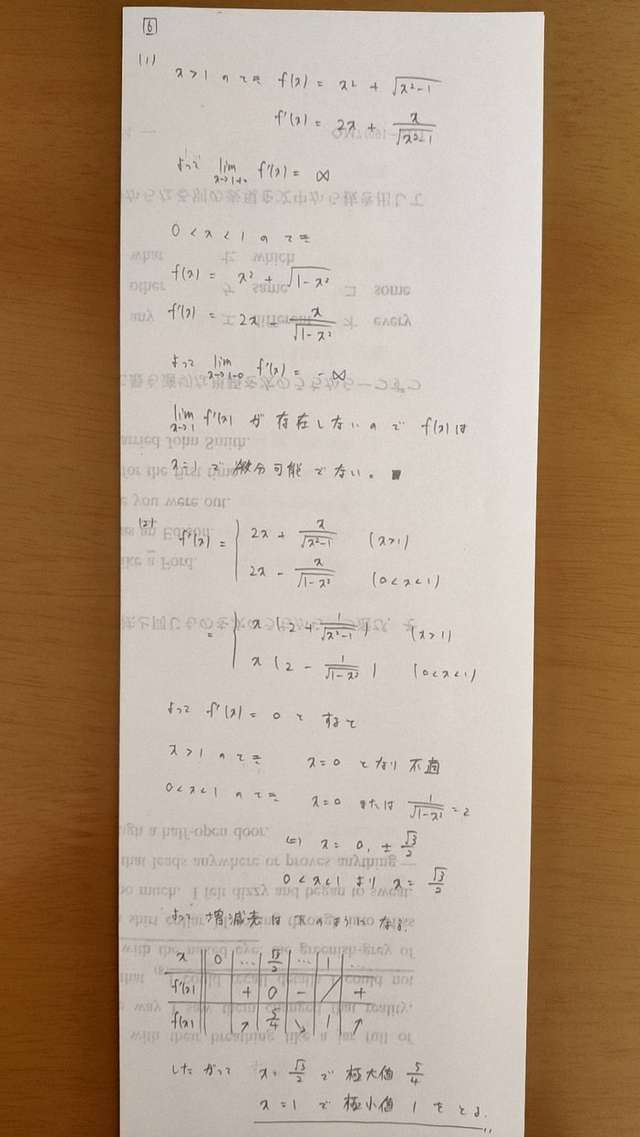 6
(1)
x>1 のとき f(x) = x² + √(x²-1)
f'(x) = 2x + x/√(x²-1)
よって lim x→1+0 f'(x) = ∞
0<x<1 のとき
f(x) = x² + √(1-x²)
f'(x) = 2x - x/√(1-x²)
よって lim x→1-0 f'(x) = -∞
lim x→1 f'(x) が 存在しないので f(x)は
x=1 で 微分可能でない。■
(2) f'(x) = { 2x + x/√(x²-1) (x>1)
2x - x/√(1-x²) (0<x<1)
= { x (2 + 1/√(x²-1)) (x>1)
x (2 - 1/√(1-x²)) (0<x<1)
よって f'(x) = 0 とすると
x>1 のとき x=0 となり 不適
0<x<1 のとき x=0 または 1/√(1-x²) = 2
⇔ x = 0, ± √3/2
0<x<1 より x = √3/2
よって 増減表は 次のようになる
x 0 … √3/2 … 1 …
f'(x) + 0 - / +
f(x) ↗ 5/4 ↘ 1 ↗
したがって x = √3/2 で 極大値 5/4
x = 1 で 極小値 1 をとる.